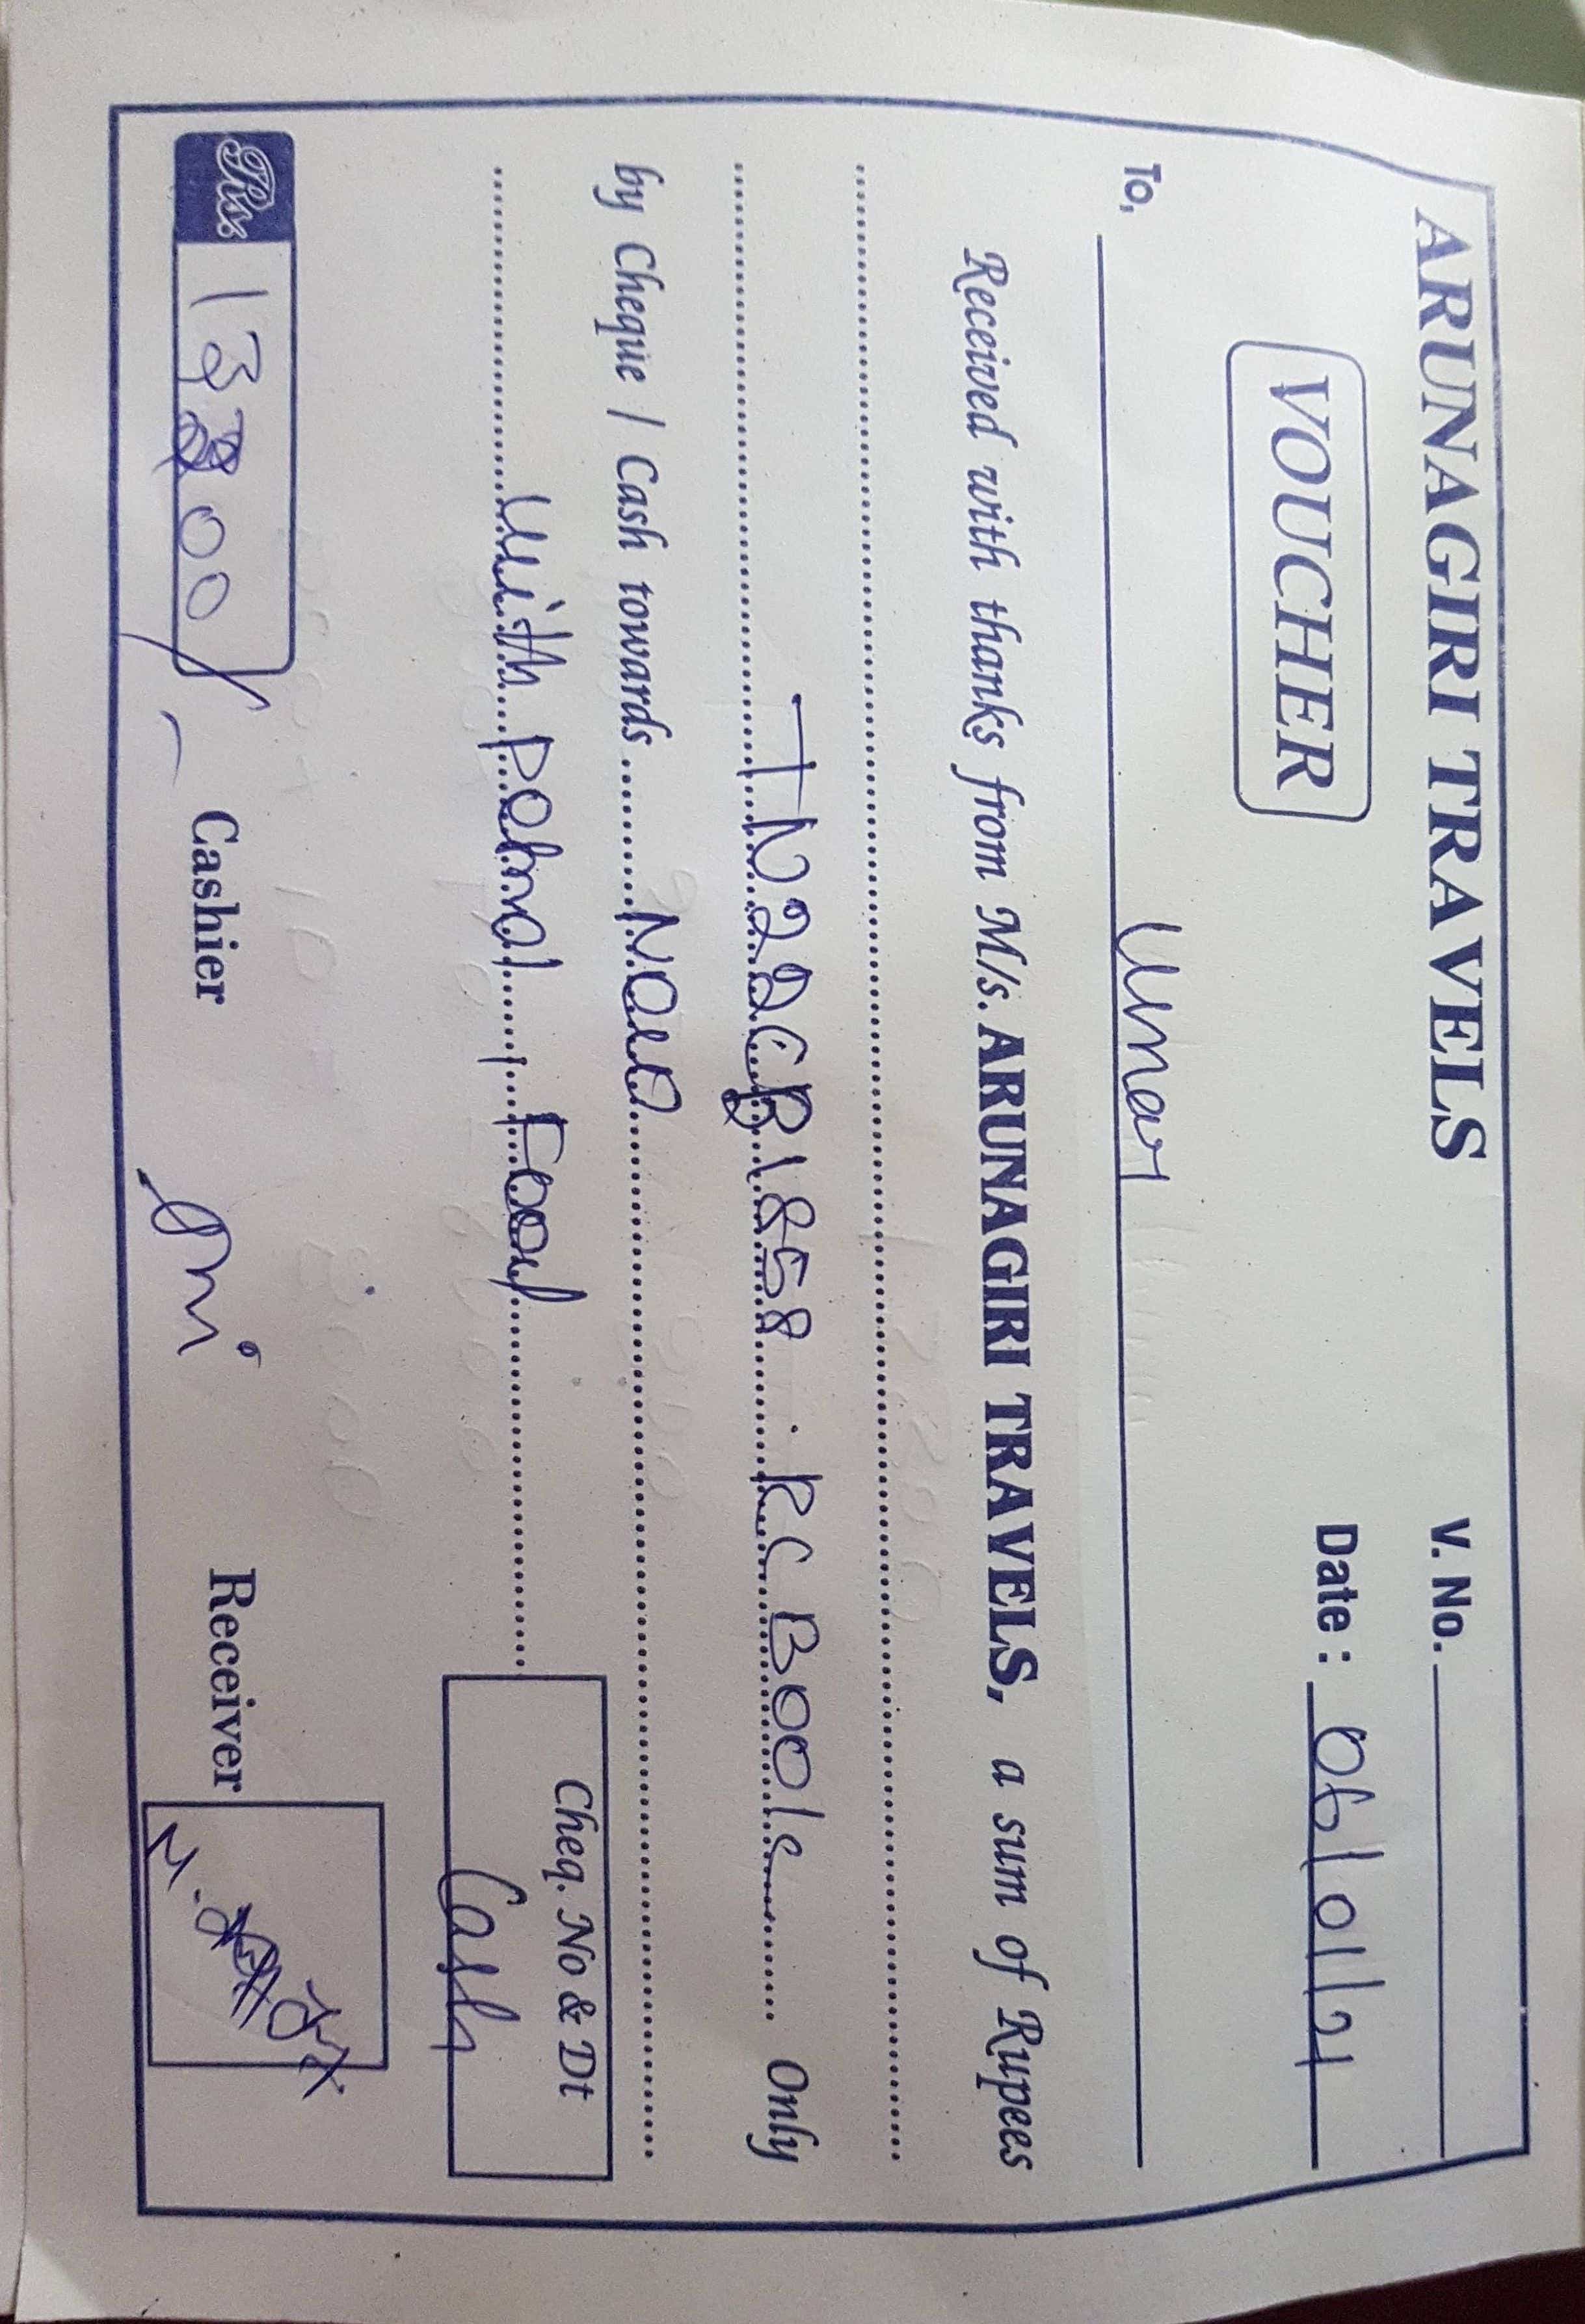 ARUNAGIRI TRAVELS
V. No.
VOUCHER
Date : 06/01/21
To, Umar
Received with thanks from M/s. ARUNAGIRI TRAVELS, a sum of Rupees
TN22CB1858 RC Book Only
by Cheque / Cash towards
with Petrol Food
Cheq. No & Dt
Cash
Rs.
Cashier
Receiver